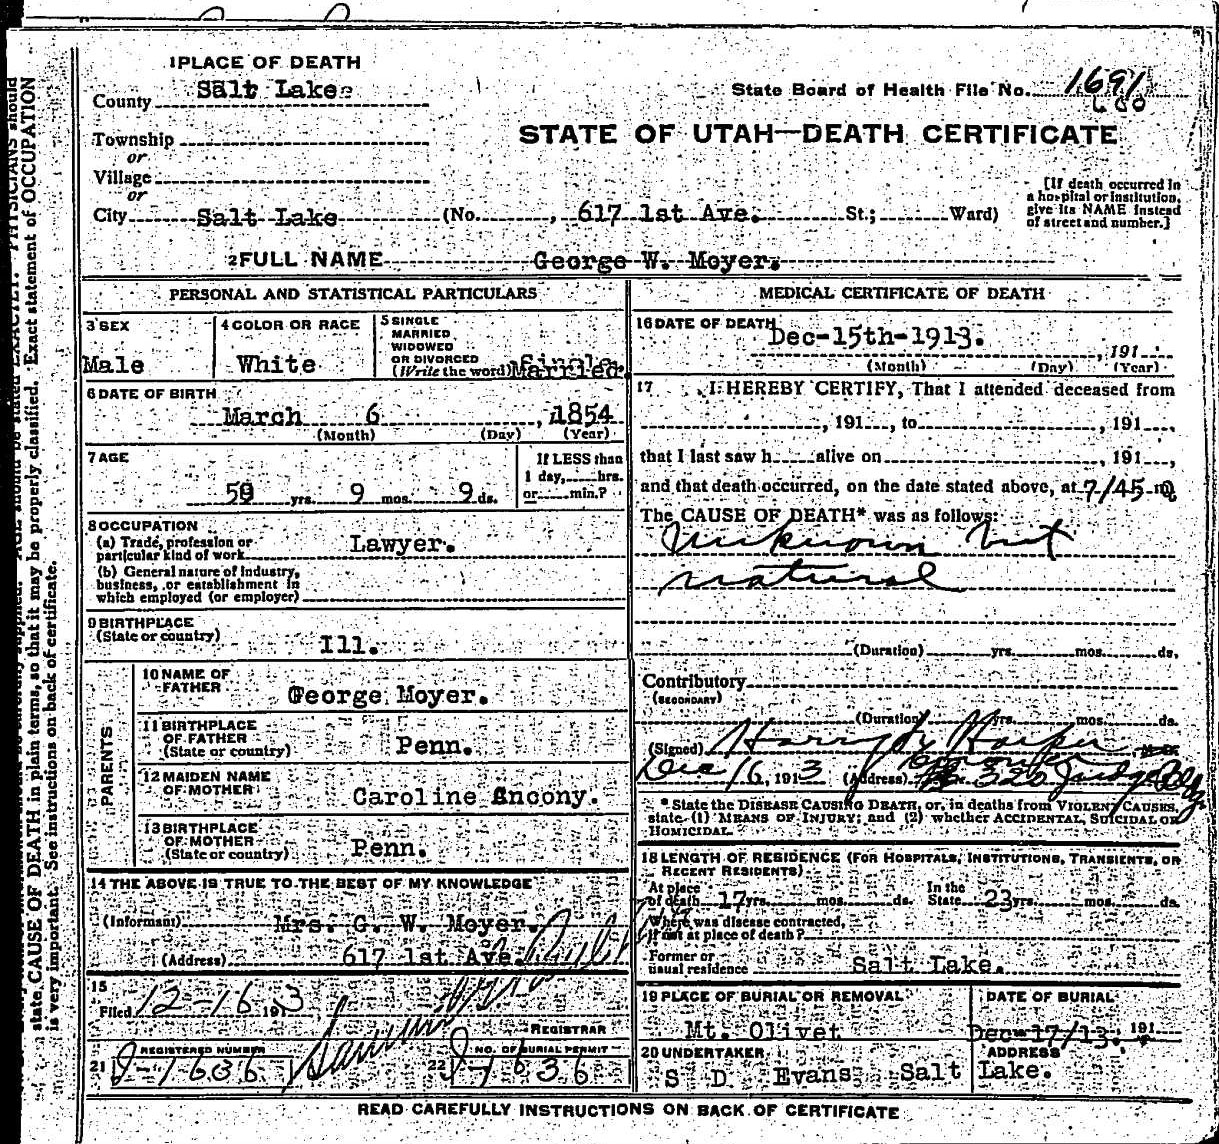 1 PLACE OF DEATH
County Salt Lake
State Board of Health File No. 1691
Township
or
Village
or
City Salt Lake (No. , 617 1st Ave. St.; Ward)
STATE OF UTAH—DEATH CERTIFICATE
[If death occurred in
a hospital or institution,
give its NAME instead
of street and number.]
2 FULL NAME George W. Moyer.
PERSONAL AND STATISTICAL PARTICULARS
3 SEX
Male
4 COLOR OR RACE
White
5 SINGLE
MARRIED
WIDOWED
OR DIVORCED
(Write the word) Single Married.
6 DATE OF BIRTH
March 6, 1854
(Month) (Day) (Year)
7 AGE
59 yrs. 9 mos. 9 ds.
If LESS than
1 day, hrs.
or min.?
8 OCCUPATION
(a) Trade, profession or
particular kind of work Lawyer.
(b) General nature of Industry,
business, or establishment in
which employed (or employer)
9 BIRTHPLACE
(State or country) Ill.
PARENTS
10 NAME OF
FATHER George Moyer.
11 BIRTHPLACE
OF FATHER
(State or country) Penn.
12 MAIDEN NAME
OF MOTHER Caroline Ancony.
13 BIRTHPLACE
OF MOTHER
(State or country) Penn.
14 THE ABOVE IS TRUE TO THE BEST OF MY KNOWLEDGE
(Informant) Mrs. G. W. Moyer.
(Address) 617 1st Ave.
15
Filed 12-16 1913
REGISTRAR
REGISTERED NUMBER
21 J-1636
NO. OF BURIAL PERMIT
22 J-1636
MEDICAL CERTIFICATE OF DEATH
16 DATE OF DEATH Dec-15th-1913. , 191
(Month) (Day) (Year)
17 I HEREBY CERTIFY, That I attended deceased from
, 191 , to , 191 ,
that I last saw h alive on , 191 ,
and that death occurred, on the date stated above, at 7/45 m
The CAUSE OF DEATH* was as follows:
Unknown but
natural
(Duration) yrs. mos. ds.
Contributory
(SECONDARY)
(Duration) yrs. mos. ds.
(Signed) Harry Harper
Dec 16, 1913 (Address) 326 Judge Bldg
* State the DISEASE CAUSING DEATH, or, in deaths from VIOLENT CAUSES,
state (1) MEANS OF INJURY; and (2) whether ACCIDENTAL, SUICIDAL OR
HOMICIDAL.
18 LENGTH OF RESIDENCE (FOR HOSPITALS, INSTITUTIONS, TRANSIENTS, OR
RECENT RESIDENTS)
At place
of death 17 yrs. mos. ds.
In the
State 23 yrs. mos. ds.
Where was disease contracted,
If not at place of death?
Former or
usual residence Salt Lake.
19 PLACE OF BURIAL OR REMOVAL
Mt. Olivet
DATE OF BURIAL
Dec-17/13. 191
20 UNDERTAKER
S D Evans
ADDRESS
Salt Lake.
READ CAREFULLY INSTRUCTIONS ON BACK OF CERTIFICATE
PHYSICIANS should
state CAUSE OF DEATH in plain terms, so that it may be properly classified. Exact statement of OCCUPATION
is very important. See instructions on back of certificate.